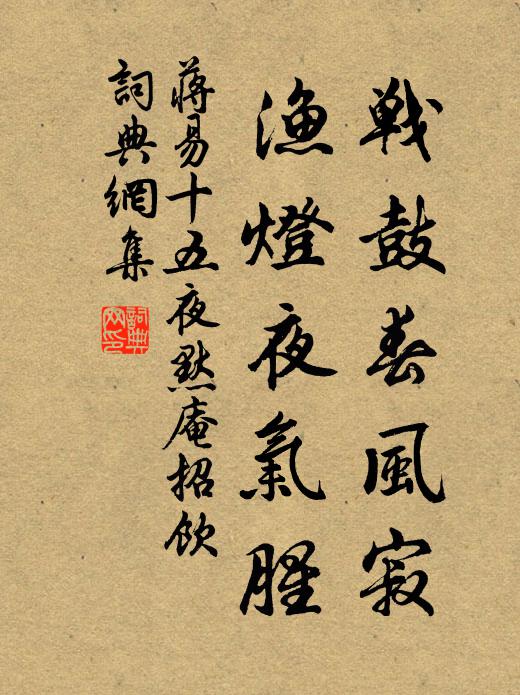 戦鼓春風寂
漁燈夜氣腥
蔣易十五夜黙庵招飲
詞典網集
詞典网印